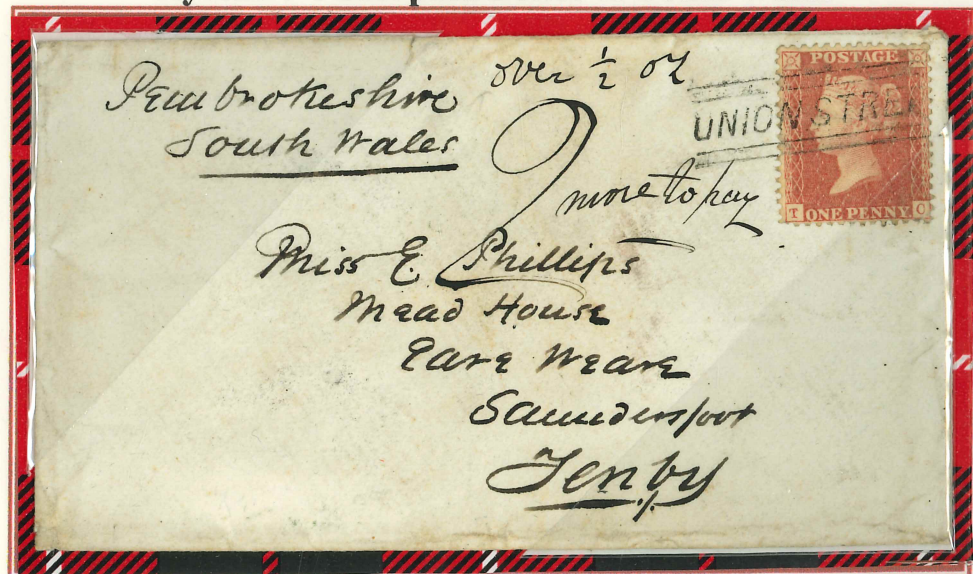 Pembrokeshire
South Wales
over ½ oz
2
more to pay
POSTAGE
UNION STRE
T ONE PENNY C
Miss E. Phillips
Mead House
Weare
Saundersfoot
Tenby